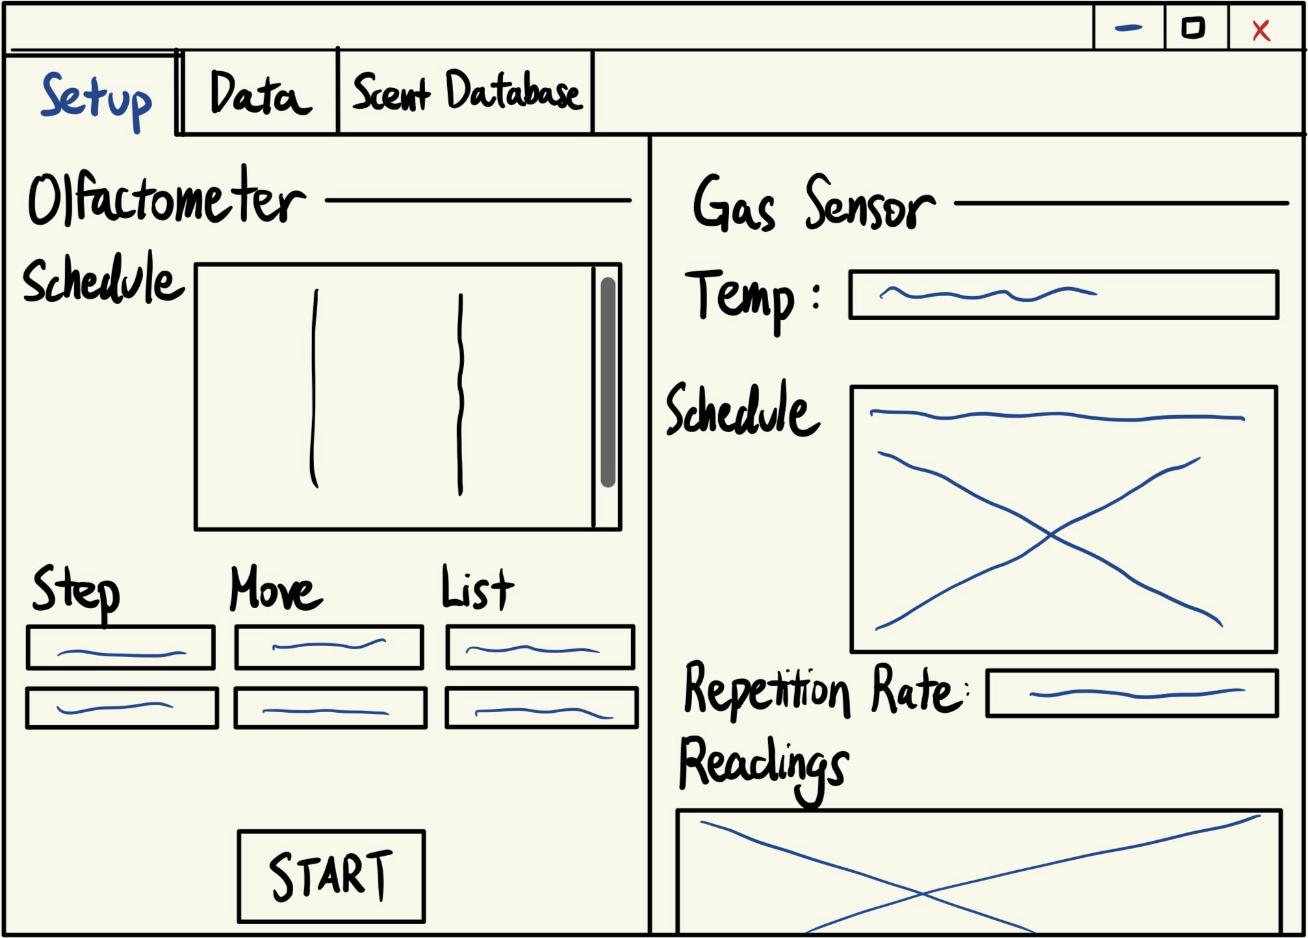 Setup Data Scent Database
Olfactometer
Schedule
Step Move List
START
Gas Sensor
Temp :
Schedule
Repetition Rate:
Readings